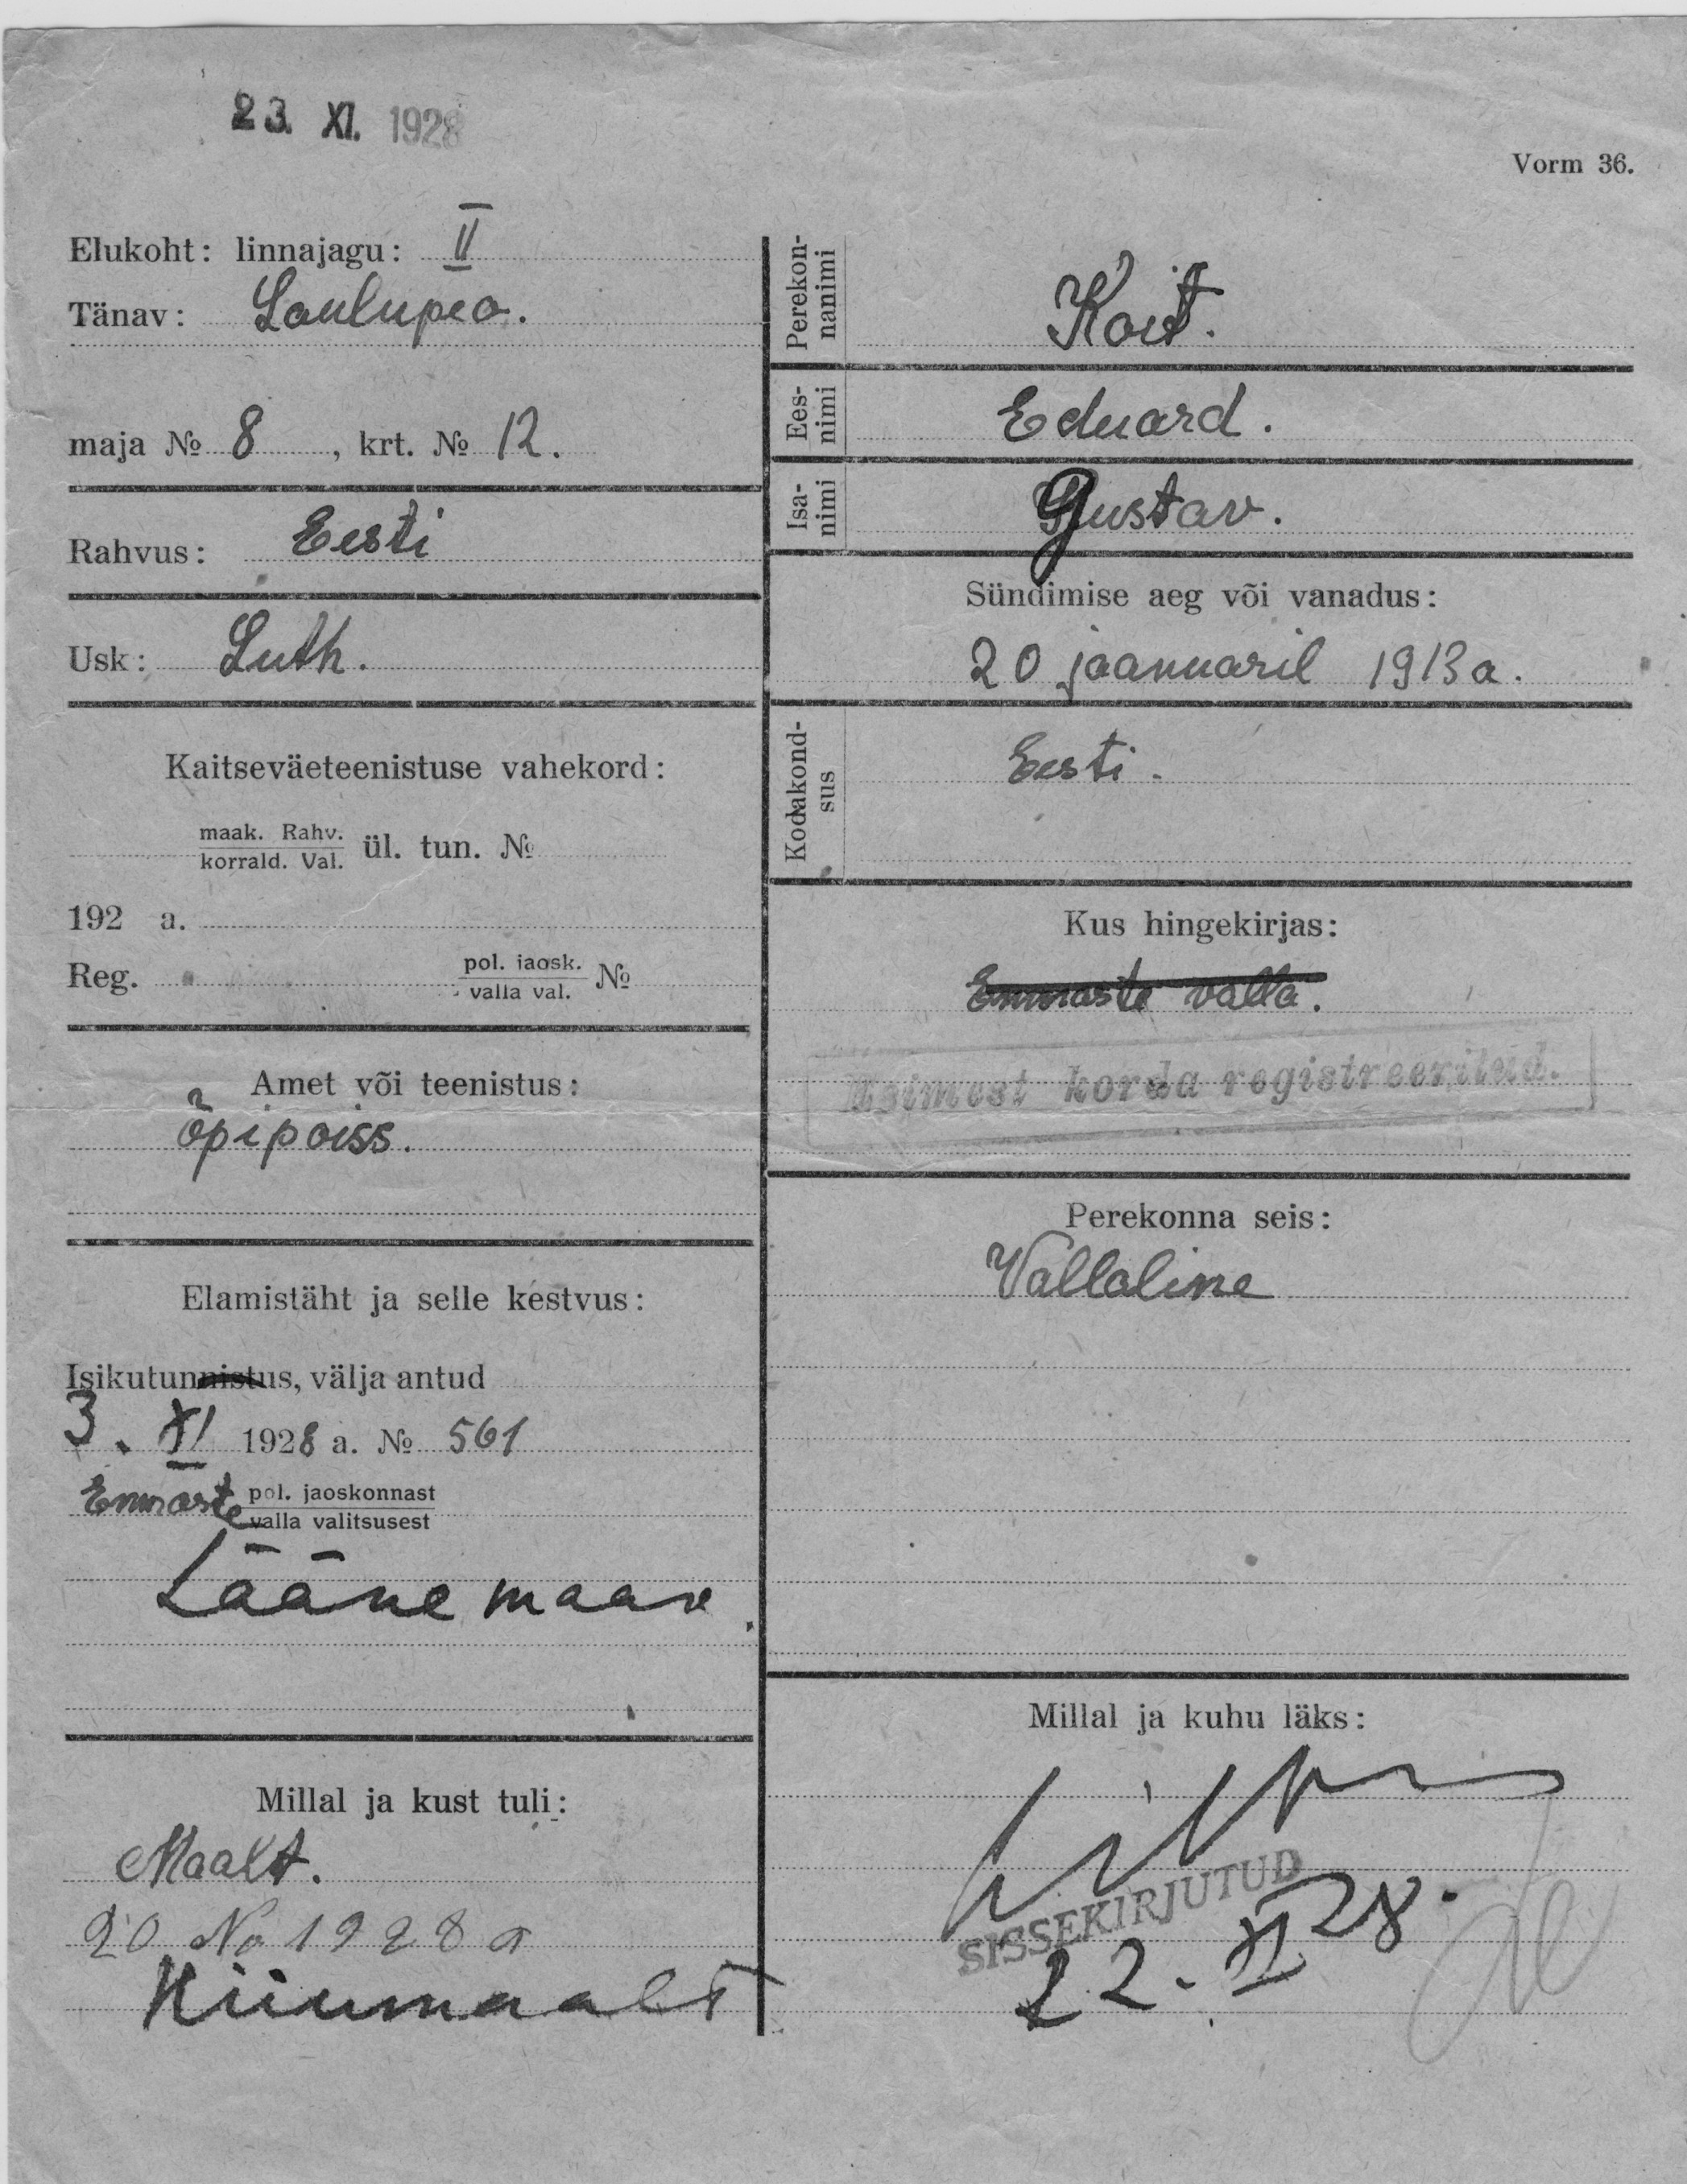 23. XI. 1928
Vorm 36.
Elukoht: linnajagu: II
Tänav: Laulupeo.
maja № 8, krt. № 12.
Rahvus: Eesti
Usk: Luth.
Kaitseväeteenistuse vahekord:
maak. Rahv.
korrald. Val. ül. tun. №
192 a.
Reg. pol. jaosk. №
valla val.
Amet või teenistus:
õpipoiss.
Elamistäht ja selle kestvus:
Isikutunnistus, välja antud
3. XI 1928 a. № 561
Emmaste pol. jaoskonnast
valla valitsusest
Läänemaa
Millal ja kust tuli:
Maalt.
20 No 1928 a
Hiiumaalt
Perekon-
nanimi
Koit.
Ees-
nimi
Eduard.
Isa-
nimi
Gustav.
Sündimise aeg või vanadus:
20 jaanuaril 1913 a.
Kodakond-
sus
Eesti.
Kus hingekirjas:
Emmaste valla.
Esimest korda registreeritud.
Perekonna seis:
Vallaline
Millal ja kuhu läks:
SISSEKIRJUTUD
22. XI 28.